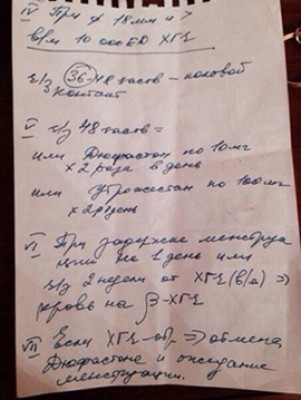 IV При ⌀ 18 мм и >
в/м 10 000 ЕД ХГЧ
ч/з 36-48 часов – половой
контакт
V ч/з 48 часов =
или Дюфастон по 10 мг
× 2 раза в день
или Утрожестан по 100 мг
× 2 р/день
VI При задержке менструа
ции на 1 день или
ч/з 2 недели от ХГЧ (в/м) ⇒
кровь на β-ХГЧ
VII Если ХГЧ – отр ⇒ отмена
Дюфастона и ожидание
менструации.